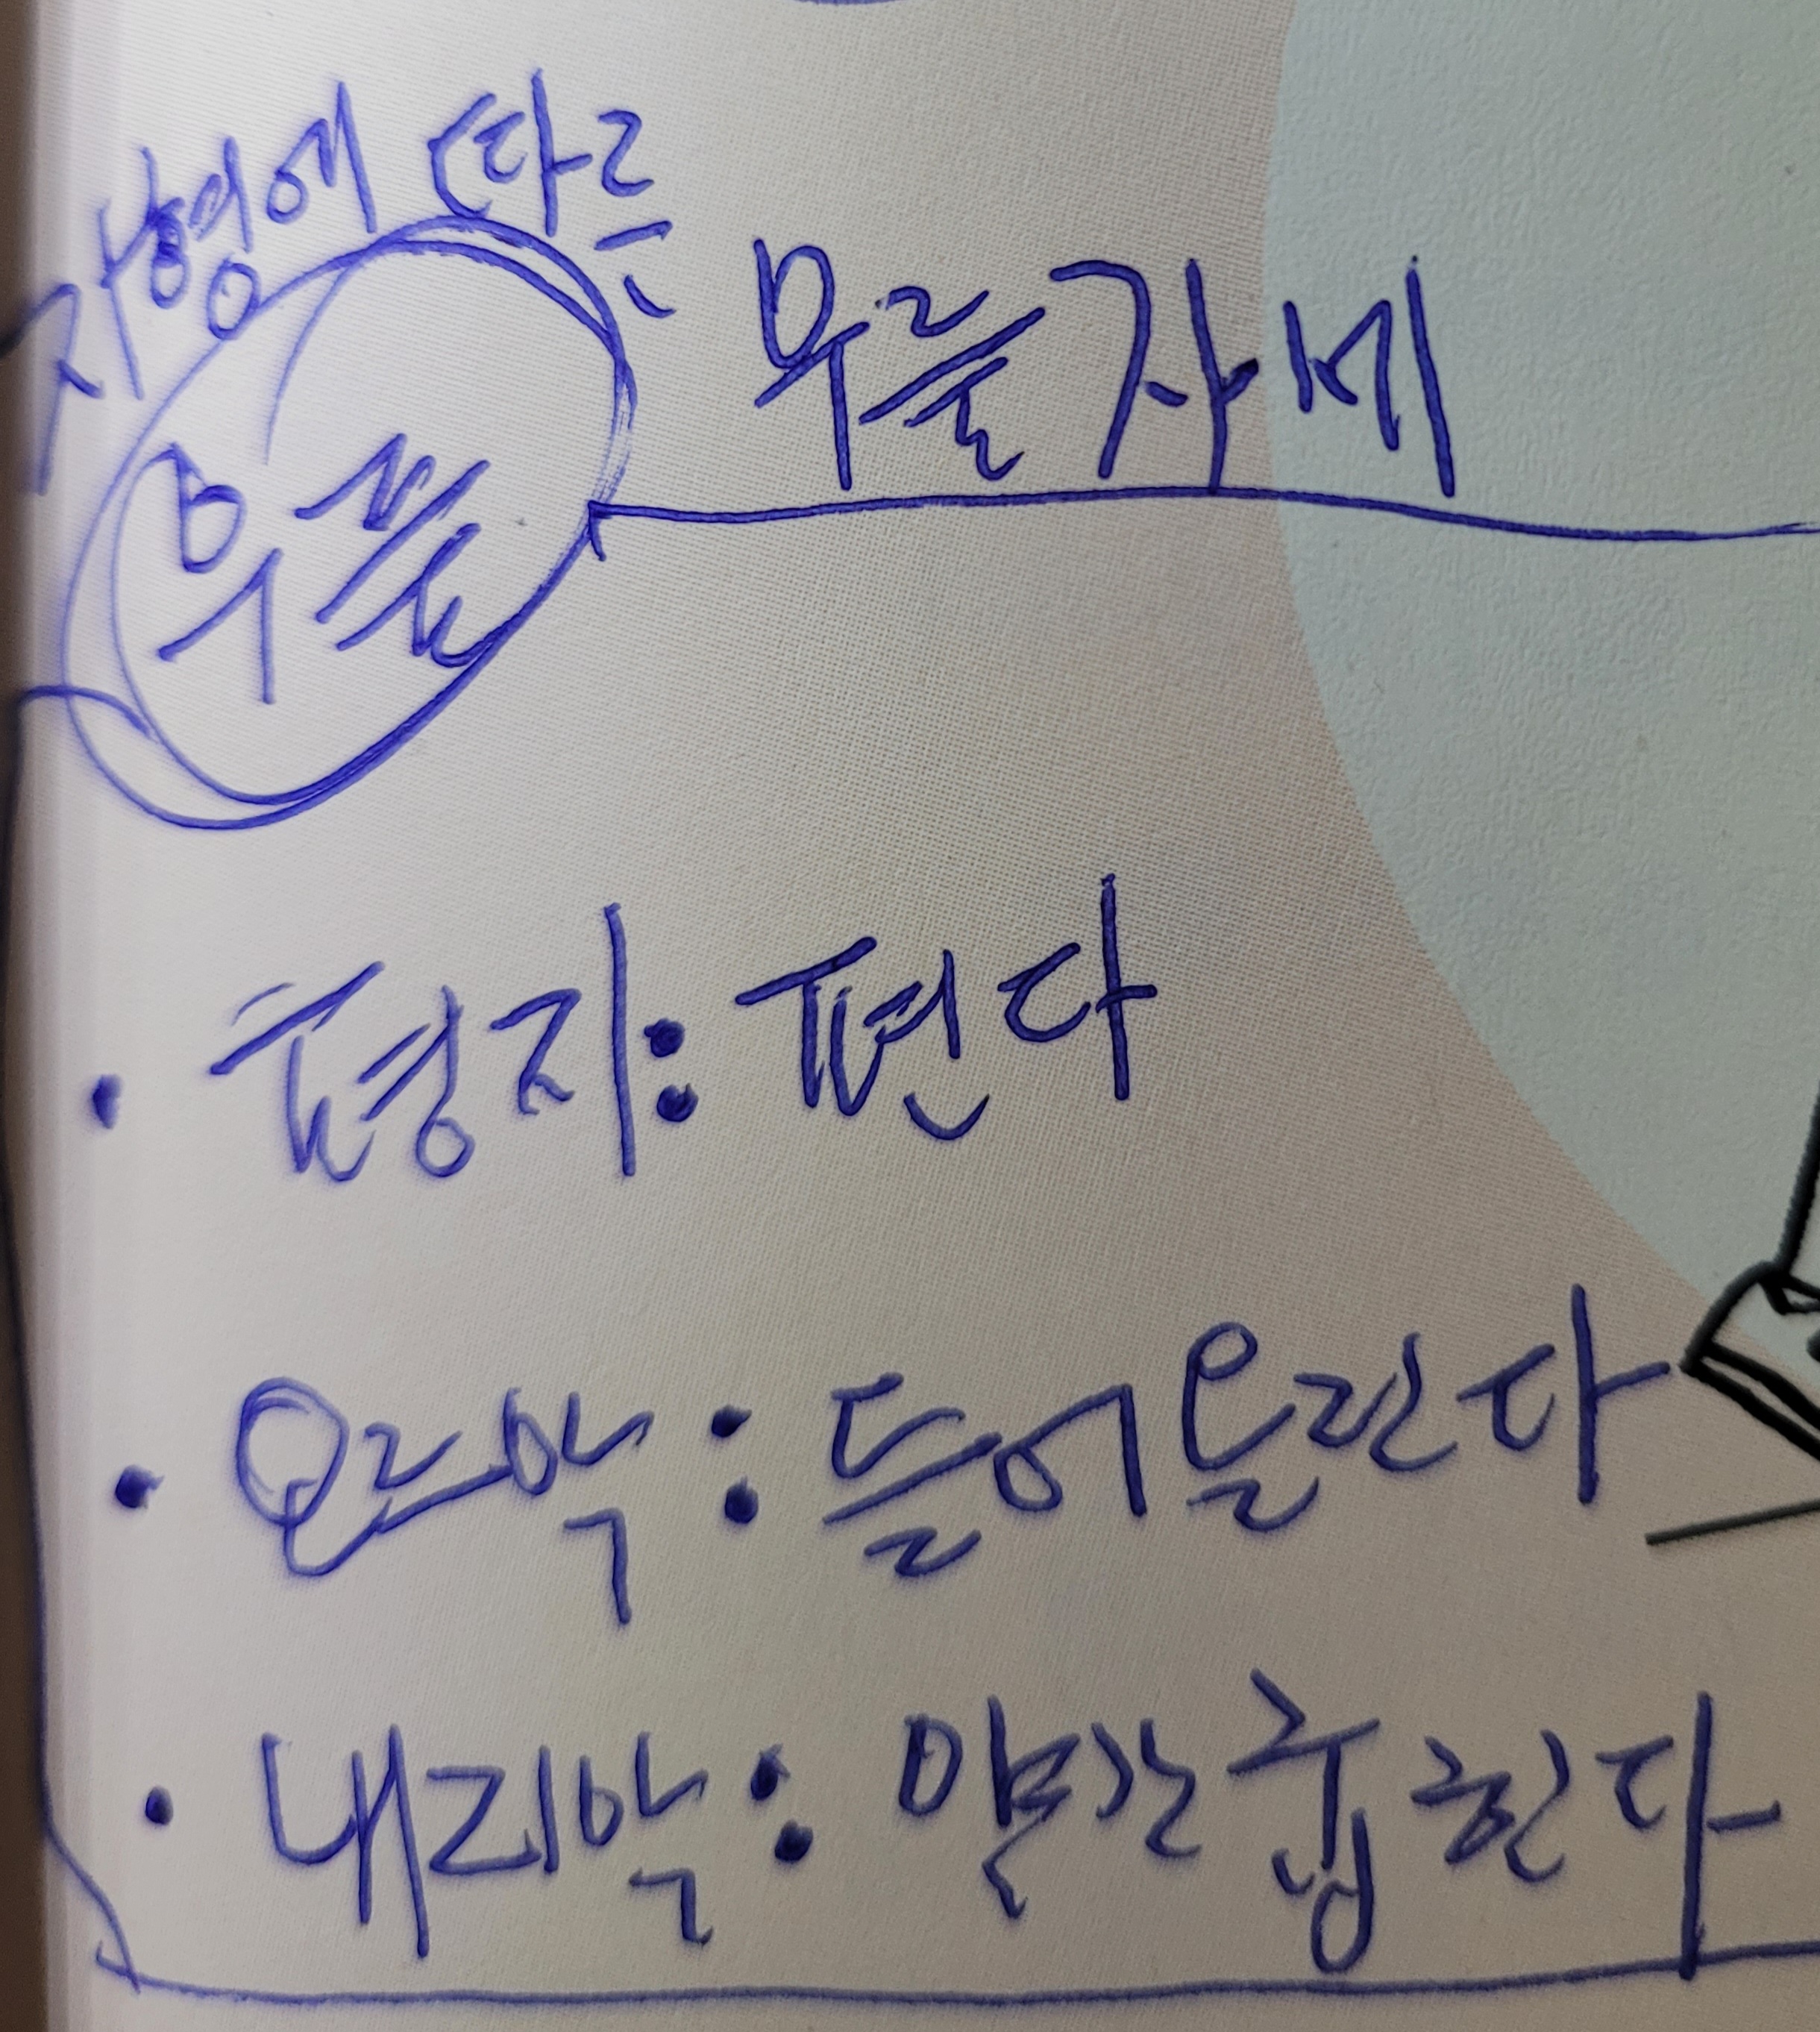 지형에 따른
무릎
무릎 자세
• 평지: 편다
• 오르막: 들어올린다
• 내리막: 약간 굽힌다